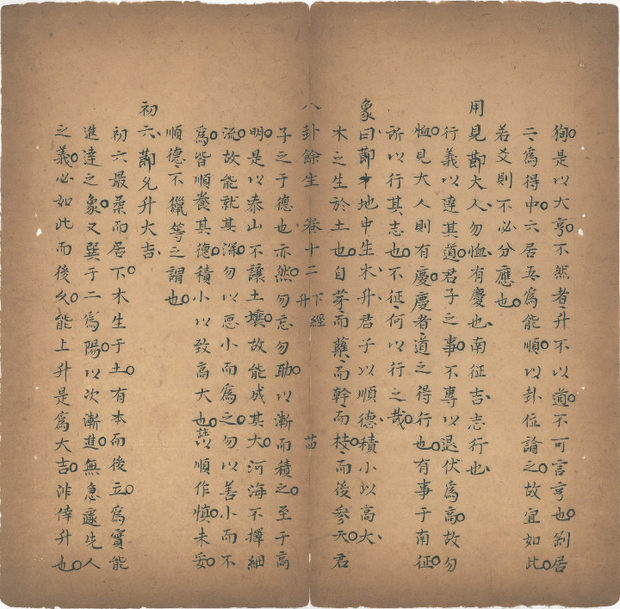 狥是以大亨不然者升不以道不可言亨也剛居
二為得中六居五為能順以卦位論之故宜如此
若爻則不必分應也
用見節大人勿恤有慶也南征吉志行也
行義以達其道君子之事不專以退伏為高故勿
恤見大人則有慶慶者道之得行也有事于南征
所以行其志也不征何以行之哉
象曰節地中生木升君子以順德積小以高大
木之生於土也自芽而蘖而幹而枝而後參天君
八卦餘生 卷十二 下經 升 苗
子之于德也亦然勿忘勿助以漸而積之至于高
明是以泰山不讓土壤故能成其大河海不擇細
流故能就其深勿以惡小而為之勿以善小而不
為皆順養其德積小以致高大也註以順作慎未妥
順德不獵等之謂也
初六節允升大吉
初六最柔而居下木生于土有本而後立為實能
進達之象又巽于二為陽以次漸進無急遽此人
之義必如此而後久能上升是為大吉非倖升也